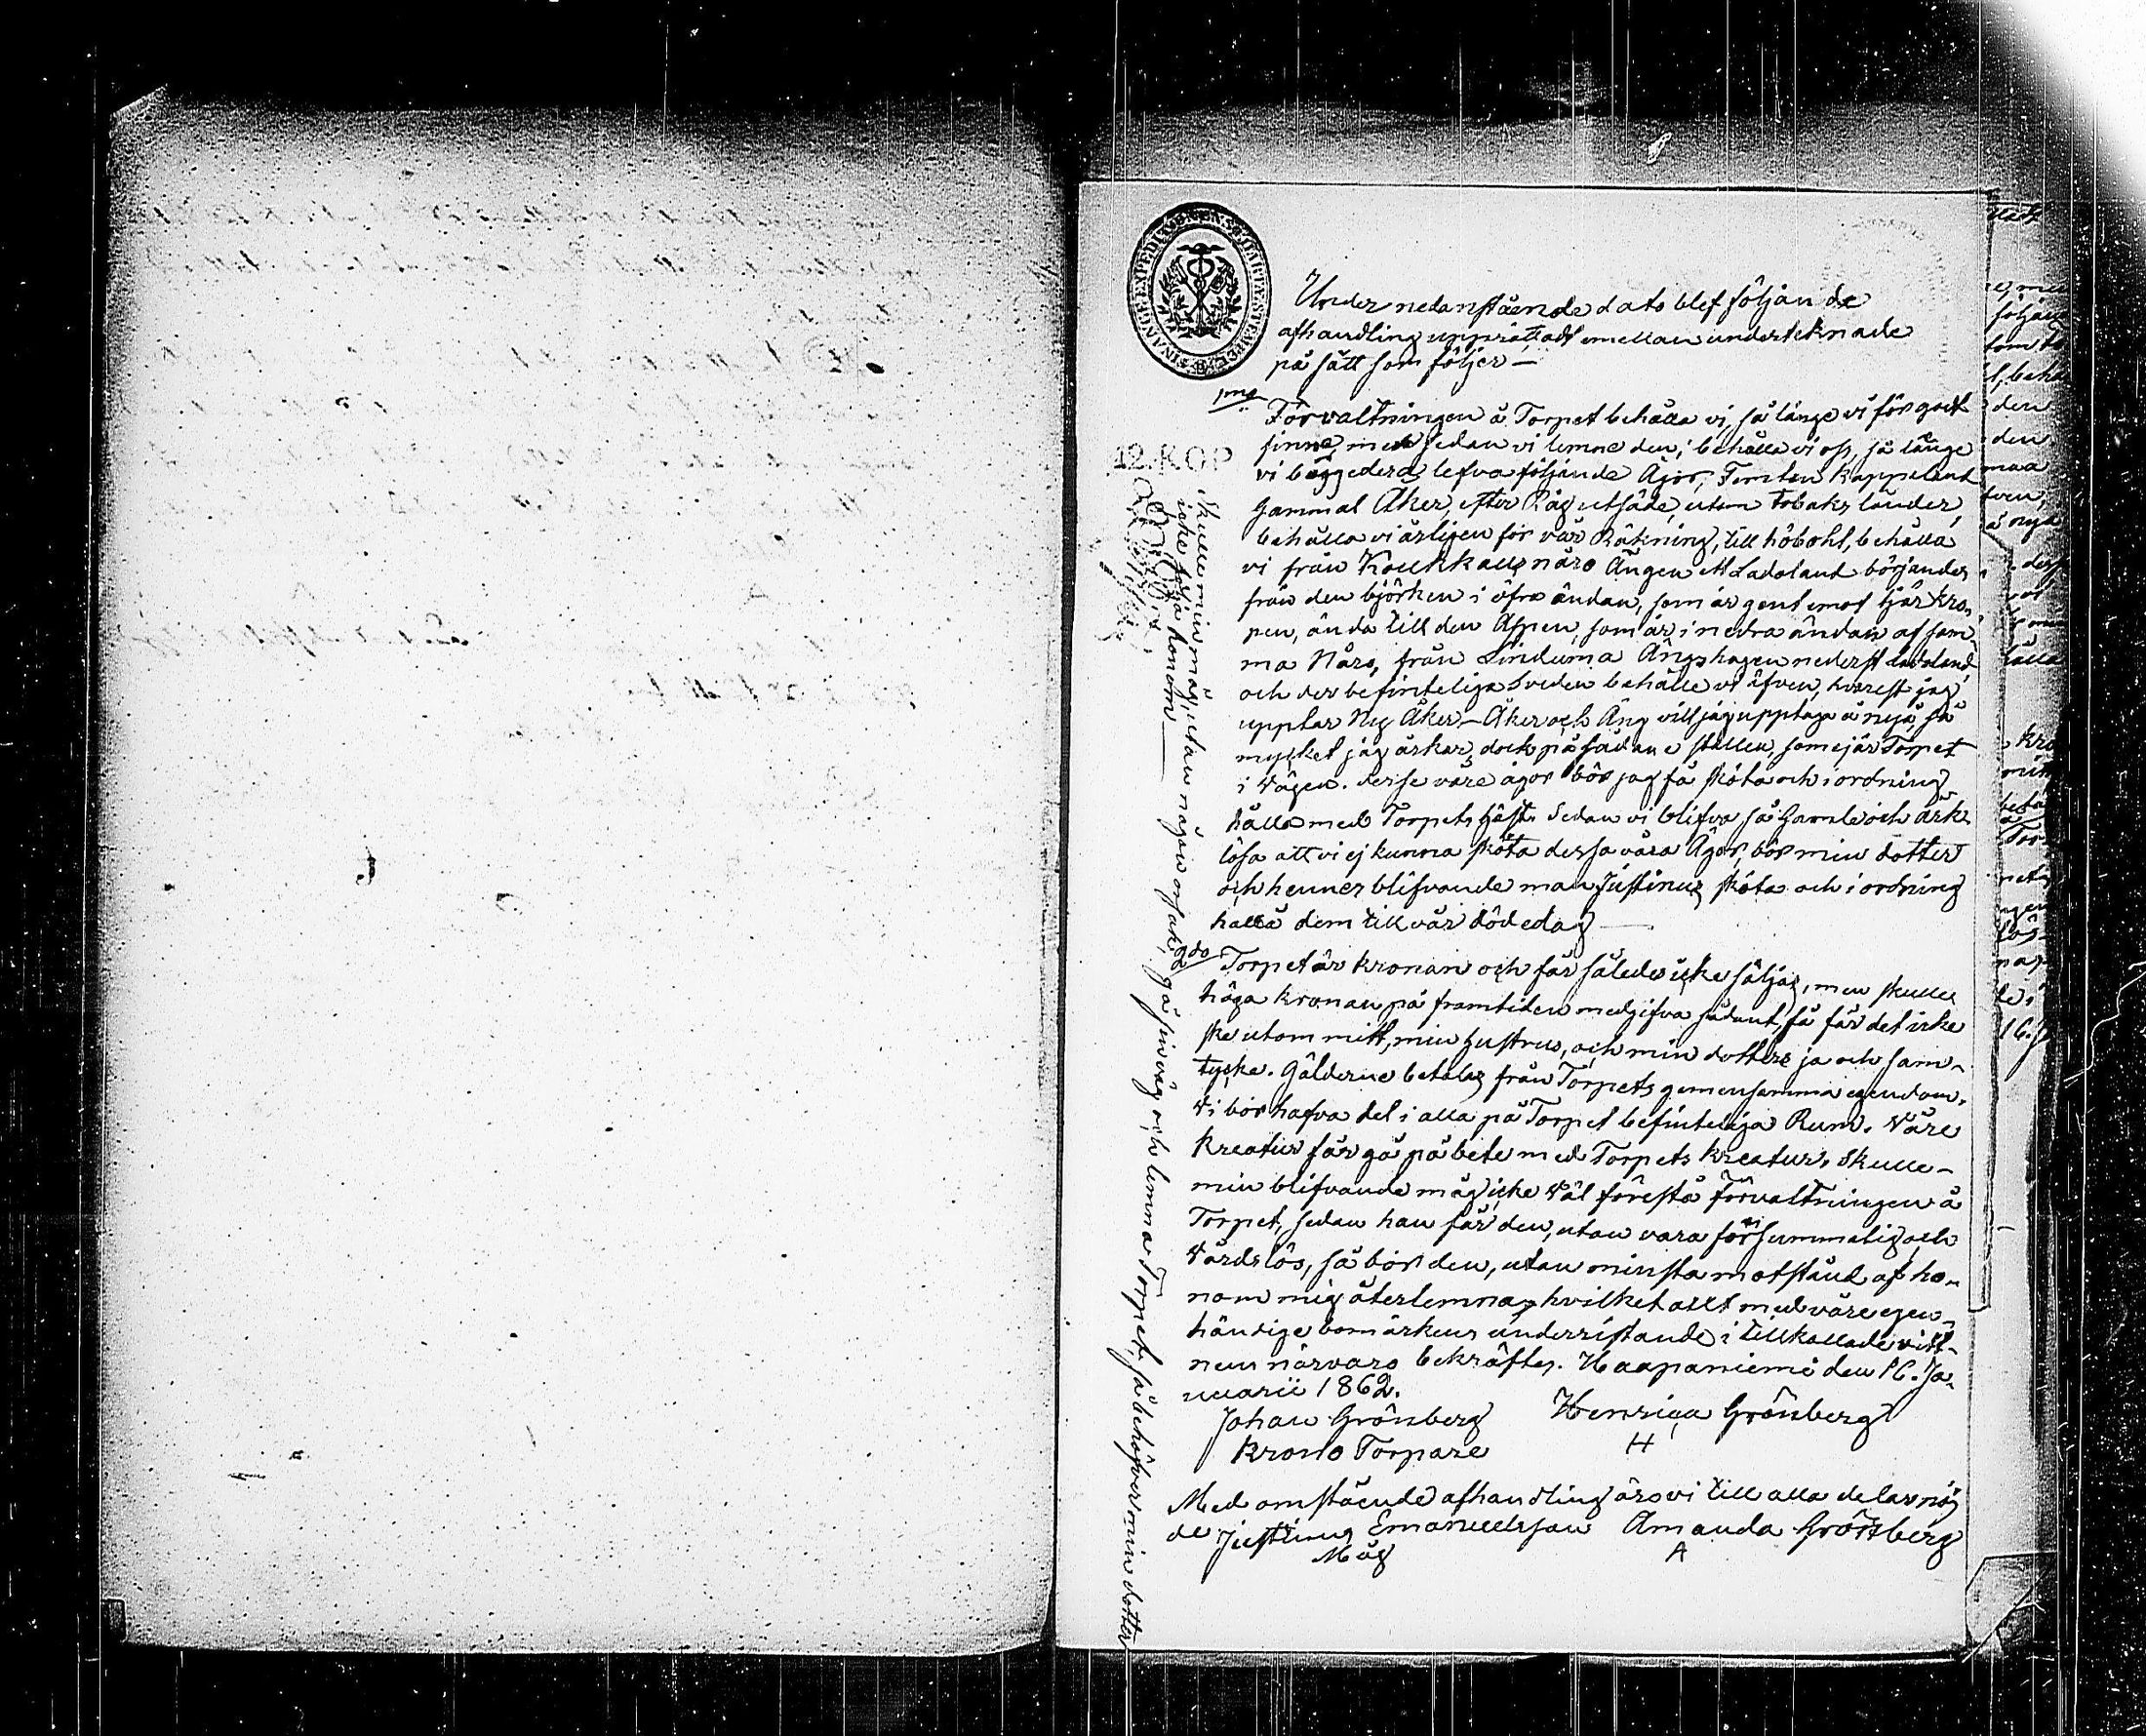 FINANCE EXPEDITIONENS CHARTÆ STEMPEL
12. KOP
Under nedanstående dato blef följande
afhandling upprättadt emellan underteknade
på sätt som följer —
1mo
Förvaltningen å Torpet behålla vi, så länge vi för godt
finne, men sedan vi lemne den, behålla vi oss, så länge
vi bäggedera lefva följande Ägor, Femton Kappeland
gammal Åker, efter Råg utsäde, utom tobaks länder,
behålla vi årligen för vår Räkning, till höbohl, behålla
vi från Koukkaus näro Ängen et Ladoland börjandes
från den björken i öfra ändan, som är gent emot tjär kro-
pen, ända till den Aspen, som är i nedra ändan af sam-
ma Näro, från Linduma Ängshagen nederst ladoland,
och der befinteliga Sveden behålle vi äfven, hvarest jag
upptar Ny Åker — Åker och Äng vill jag upptaga å nyo, så
mycket jag årkar, dock på sådane ställen, som ej är Torpet
i Vägen. desse våre ägor bör jag få sköta och i ordning
hålla med Torpets häst. Sedan vi blifva så Gamle och årk-
lösa att vi ej kunna sköta dessa våra Ägor, bör min dotter
och hennes blifvande man Justinus sköta och i ordning
hålla dem till vår dödedag —
2do
Torpet är kronan och får således icke säljas, men skulle
höga kronan på framtiden medgifva sådant, så får det icke
ske utom mitt, min hustrus, och min dotters ja och sam-
tycke. Gälderne betalas från Torpets gemensamma egendom.
Vi bör hafva del i alla på Torpet befinteliga Rum. Våre
Kreatur får gå på bete med Torpets kreatur. Skulle
min blifvande måg icke väl förestå Förvaltningen å
Torpet, sedan han får den, utan vara försummelig och
Vårdslös, så bör den, utan minsta motstånd af ho-
nom mig återlemnas, hvilket allt med våre egen-
händige bomärkens underristande i tillkallade vitt-
nens närvaro bekräftes. Haapaniemi den 16. Ja-
nuarii 1862.
Johan Grönberg Henrica Grönberg
Krono Torpare H
Med omstående afhandling äro vi till alla delar nöj-
de Justinus Emanuelsson Amanda Grönberg
Måg A
Skulle min måg, utan någon orsak, gå sin väg och lemna Torpet, så behöfver min dotter
icke följa honom —